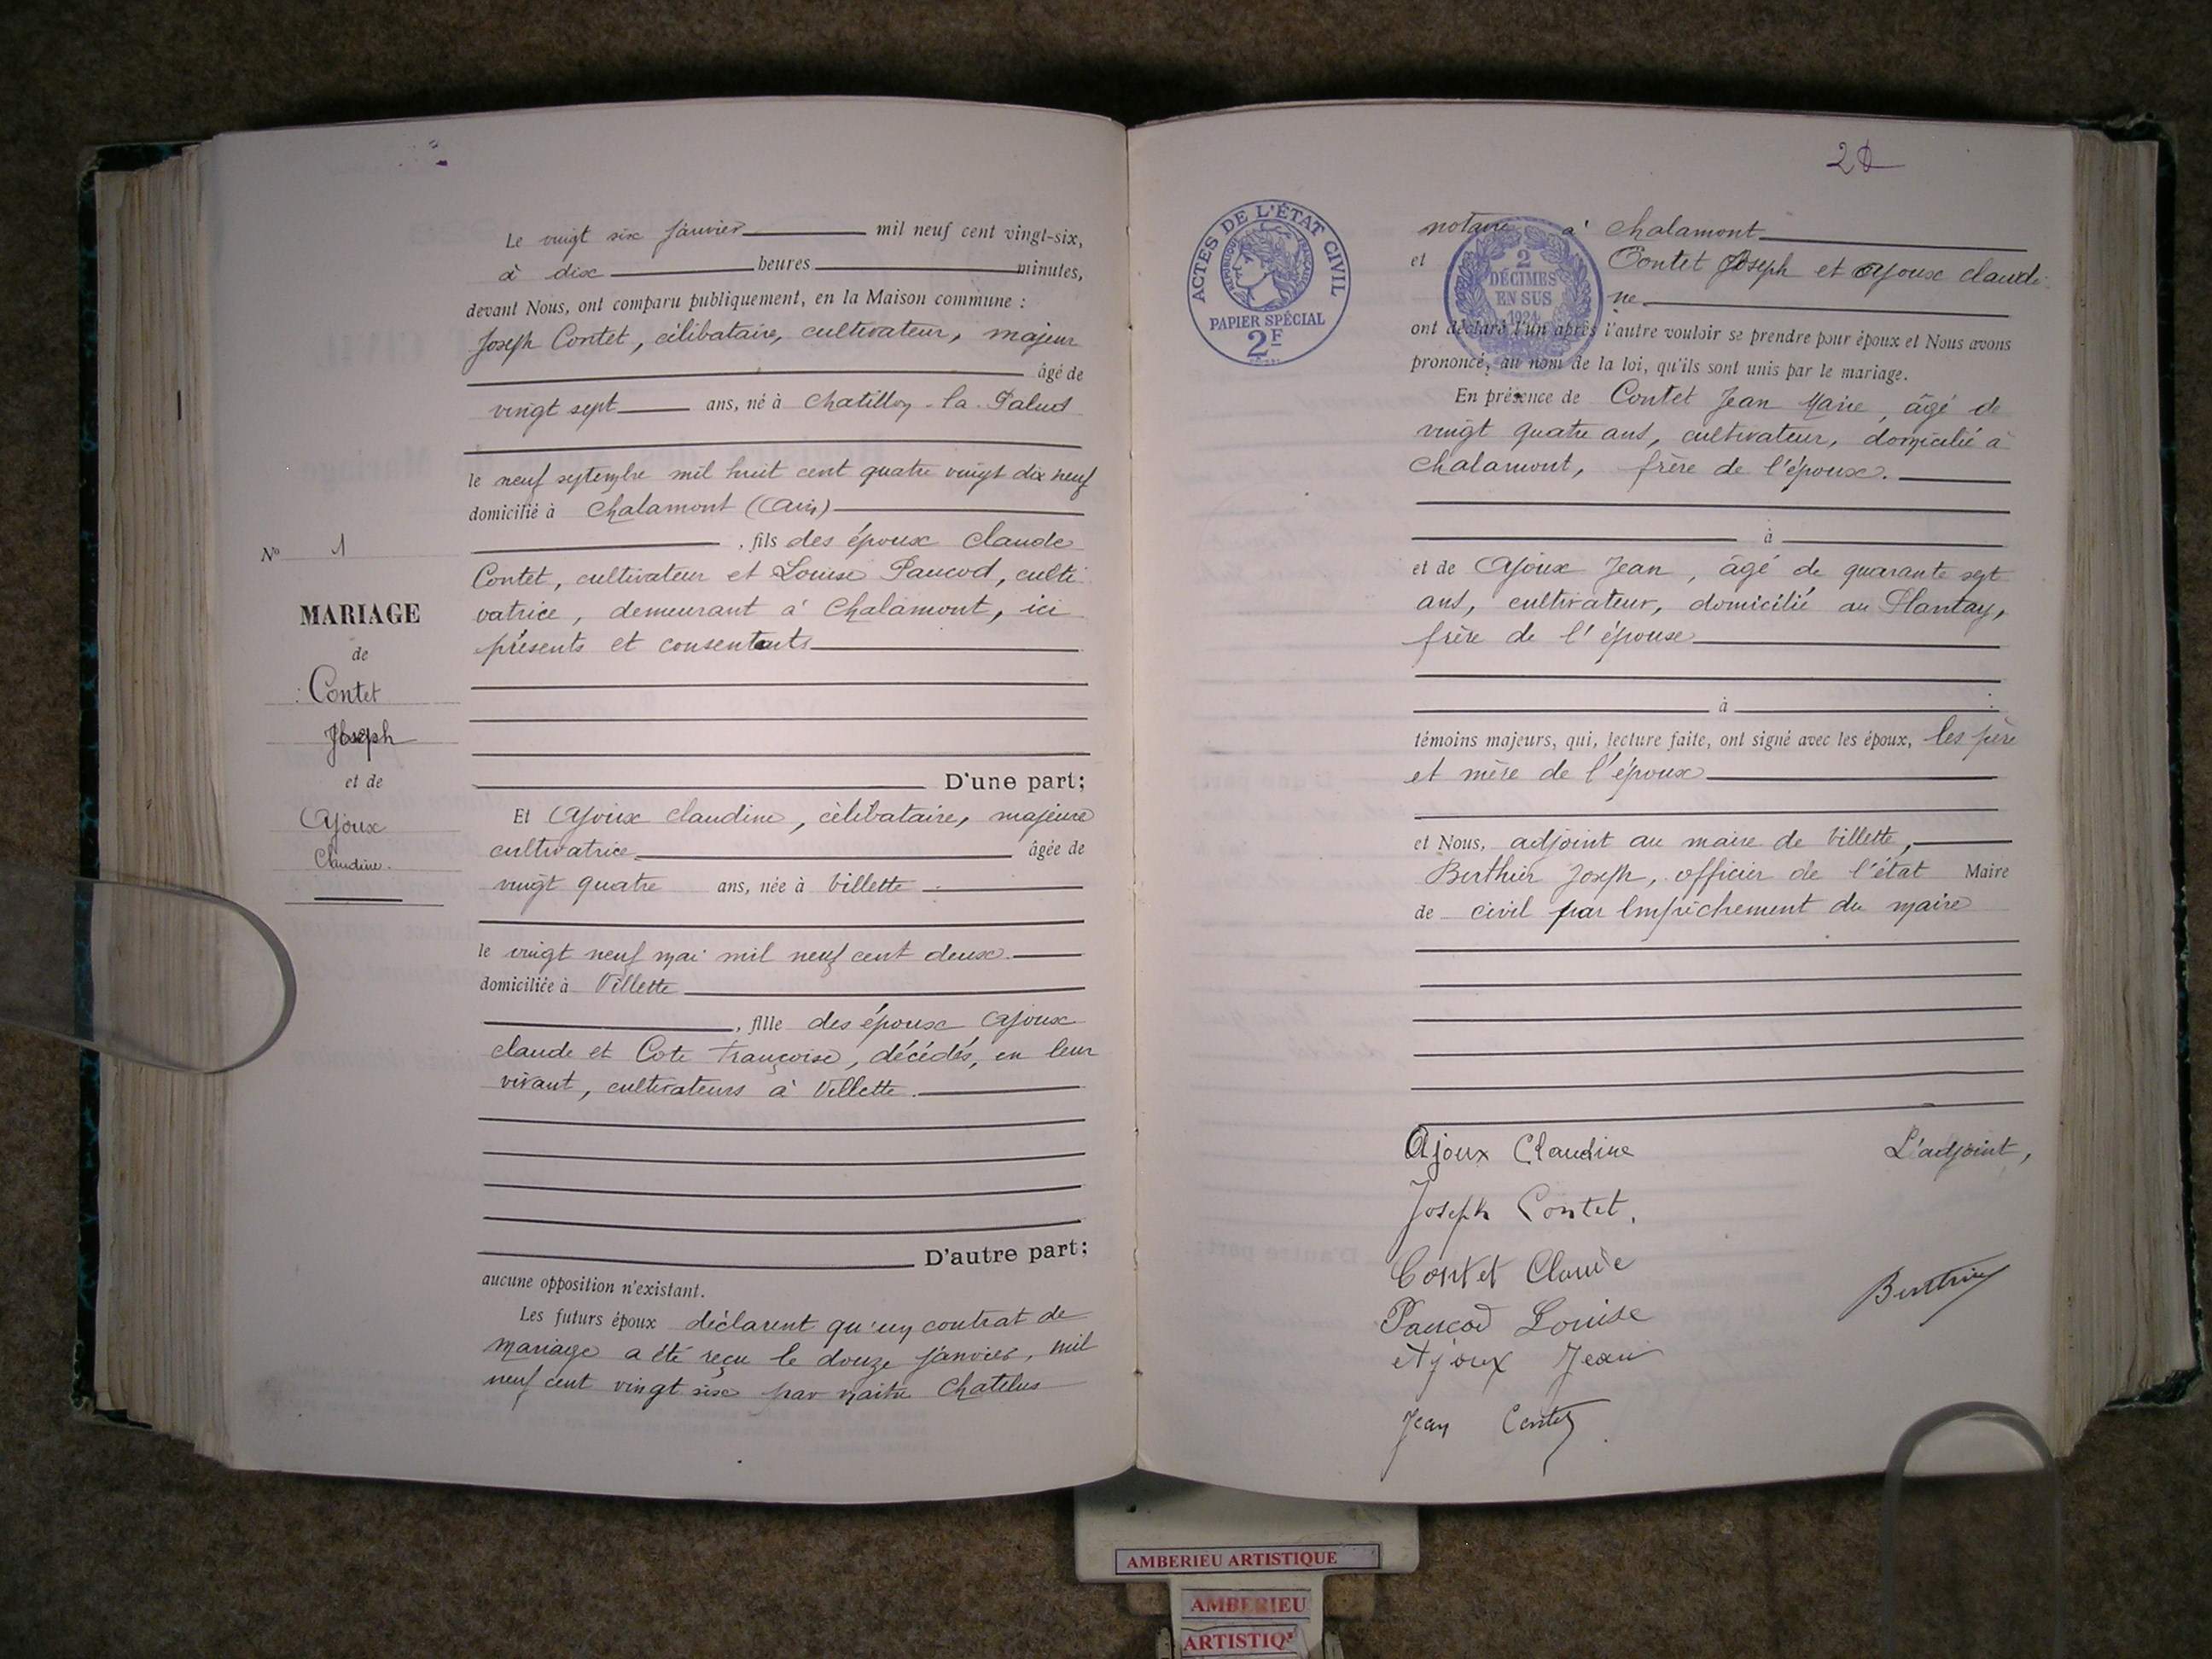 Le vingt six janvier mil neuf cent vingt-six,
à dix heures minutes,
devant Nous, ont comparu publiquement, en la Maison commune :
Joseph Contet, célibataire, cultivateur, majeur
âgé de
vingt sept ans, né à Chatillon-la-Palud
le neuf septembre mil huit cent quatre vingt dix neuf
domicilié à Chalamont (Ain)
, fils des époux Claude
Contet, cultivateur et Louise Paucod, culti
vatrice, demeurant à Chalamont, ici
présents et consentants
D'une part;
Et Ajoux Claudine, célibataire, majeure
cultivatrice âgée de
vingt quatre ans, née à Villette
le vingt neuf mai mil neuf cent deux.
domiciliée à Villette
, fille des époux Ajoux
Claude et Cote Françoise, décédés, en leur
vivant, cultivateurs à Villette.
D'autre part;
aucune opposition n'existant.
Les futurs époux déclarent qu'un contrat de
mariage a été reçu le douze janvier, mil
neuf cent vingt six par maître Chatelus
N° 1
MARIAGE
de
Contet
Joseph
et de
Ajoux
Claudine.
ACTES DE L'ÉTAT CIVIL
RÉPUBLIQUE FRANÇAISE
PAPIER SPÉCIAL
2F
2
DÉCIMES
EN SUS
1924
notaire à Chalamont
et Contet Joseph et Ajoux Claudi-
ne
ont déclaré l'un après l'autre vouloir se prendre pour époux et Nous avons
prononcé, au nom de la loi, qu'ils sont unis par le mariage.
En présence de Contet Jean Marie, âgé de
vingt quatre ans, cultivateur, domicilié à
Chalamont, frère de l'époux.
à
et de Ajoux Jean, âgé de quarante sept
ans, cultivateur, domicilié au Plantay,
frère de l'épouse
à
témoins majeurs, qui, lecture faite, ont signé avec les époux, les père
et mère de l'époux
et Nous, adjoint au maire de Villette,
Berthier Joseph, officier de l'état Maire
de civil par empêchement du maire
Ajoux Claudine
L'adjoint,
Joseph Contet.
Contet Claude
Berthier
Paucod Louise
Ajoux Jean
Jean Contet
AMBERIEU ARTISTIQUE
AMBERIEU
ARTISTIQ